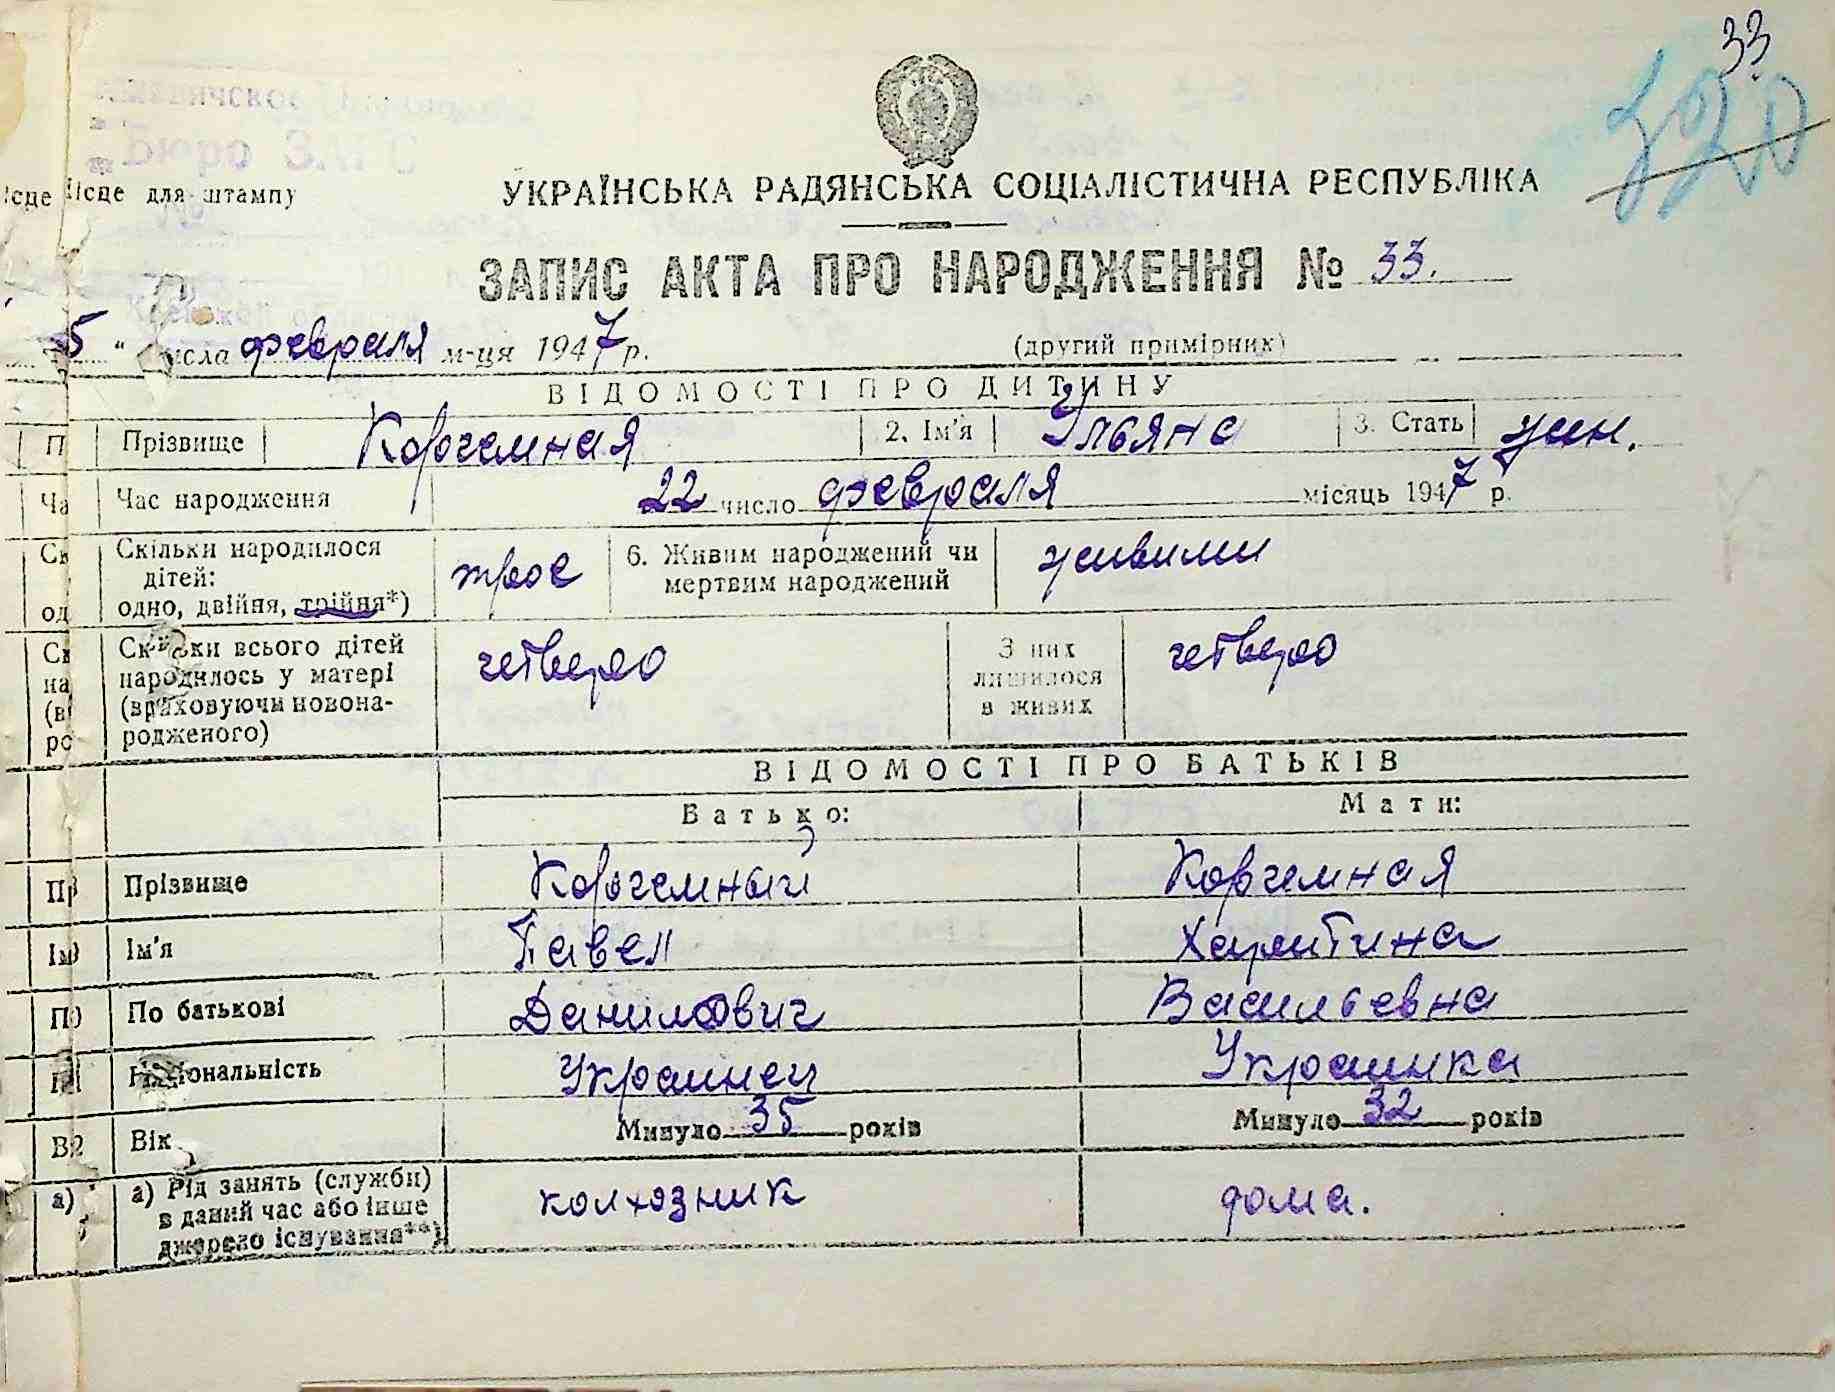 33
320
Бюро ЗАГС
Місце для штампу
УКРАЇНСЬКА РАДЯНСЬКА СОЦІАЛІСТИЧНА РЕСПУБЛІКА
ЗАПИС АКТА ПРО НАРОДЖЕННЯ № 33.
5 " числа февраля м-ця 1947 р. (другий примірник)
ВІДОМОСТІ ПРО ДИТИНУ
Прізвище Корчемная 2. Ім'я Ульяна 3. Стать жин.
Час народження 22 число февраля місяць 1947 р.
Скільки народилося дітей: одно, двійня, трійня*) трое 6. Живим народжений чи мертвим народжений живыми
Скільки всього дітей народилось у матері (враховуючи новонародженого) четверо З них лишилося в живих четверо
ВІДОМОСТІ ПРО БАТЬКІВ
Батько: Мати:
Прізвище Корчемный Корчемная
Ім'я Павел Харитина
По батькові Данилович Васильевна
Національність Украинец Украинка
Вік Минуло 35 років Минуло 32 років
а) Рід занять (служби) в даний час або інше джерело існування**) колхозник дома.